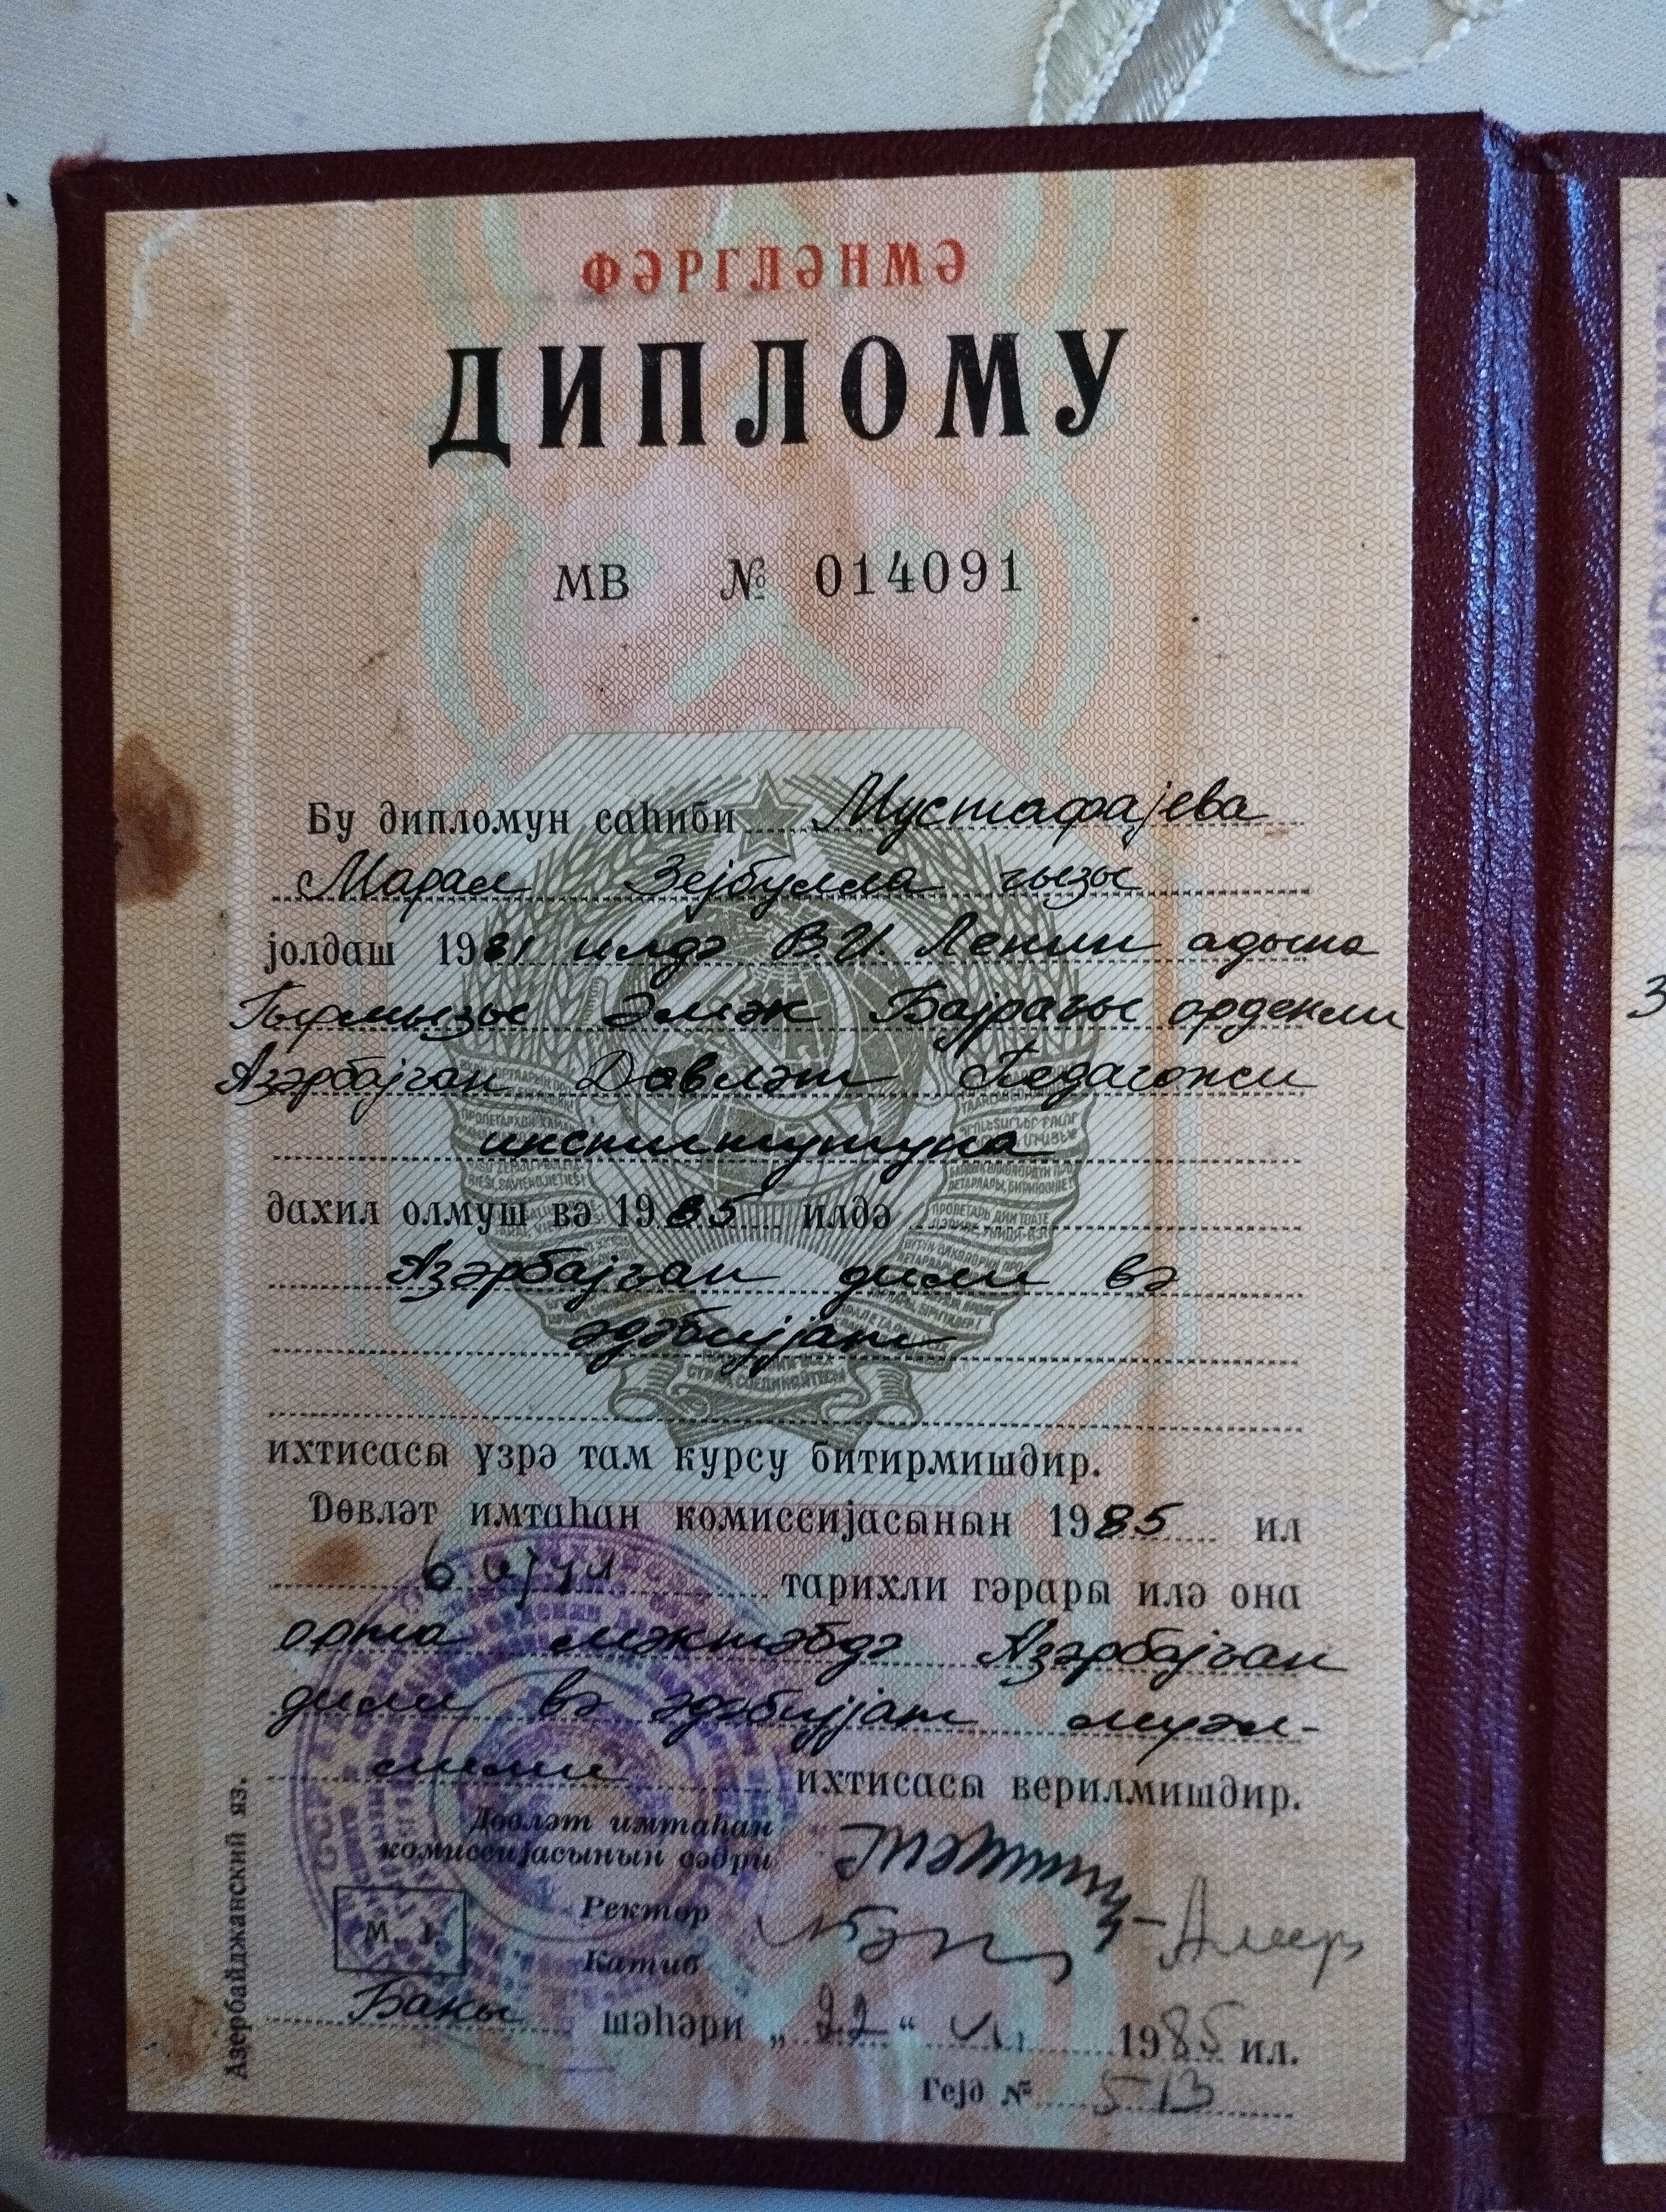 ФӘРГЛӘНМӘ
ДИПЛОМУ
МВ № 014091
Бу дипломун саһиби Мустафајева
Марал Зејбулла гызы
јолдаш 1981 илдә В.И. Ленин адына
Гырмызы Әмәк Бајрағы орденли
Азәрбајҹан Дөвләт Педагожи
институтуна
дахил олмуш вә 1985 илдә
Азәрбајҹан дили вә
әдәбијјат
ихтисасы үзрә там курсу битирмишдир.
Дөвләт имтаһан комиссијасынын 1985 ил
6 ијул тарихли гәрары илә она
орта мәктәбдә Азәрбајҹан
дили вә әдәбијјат мүәл-
лими ихтисасы верилмишдир.
Дөвләт имтаһан
комиссијасынын сәдри
Ректор
М. J.
Катиб
Бакы шәһәри „22“ VII 1985 ил.
Гејд № 513
Азербайджанский яз.